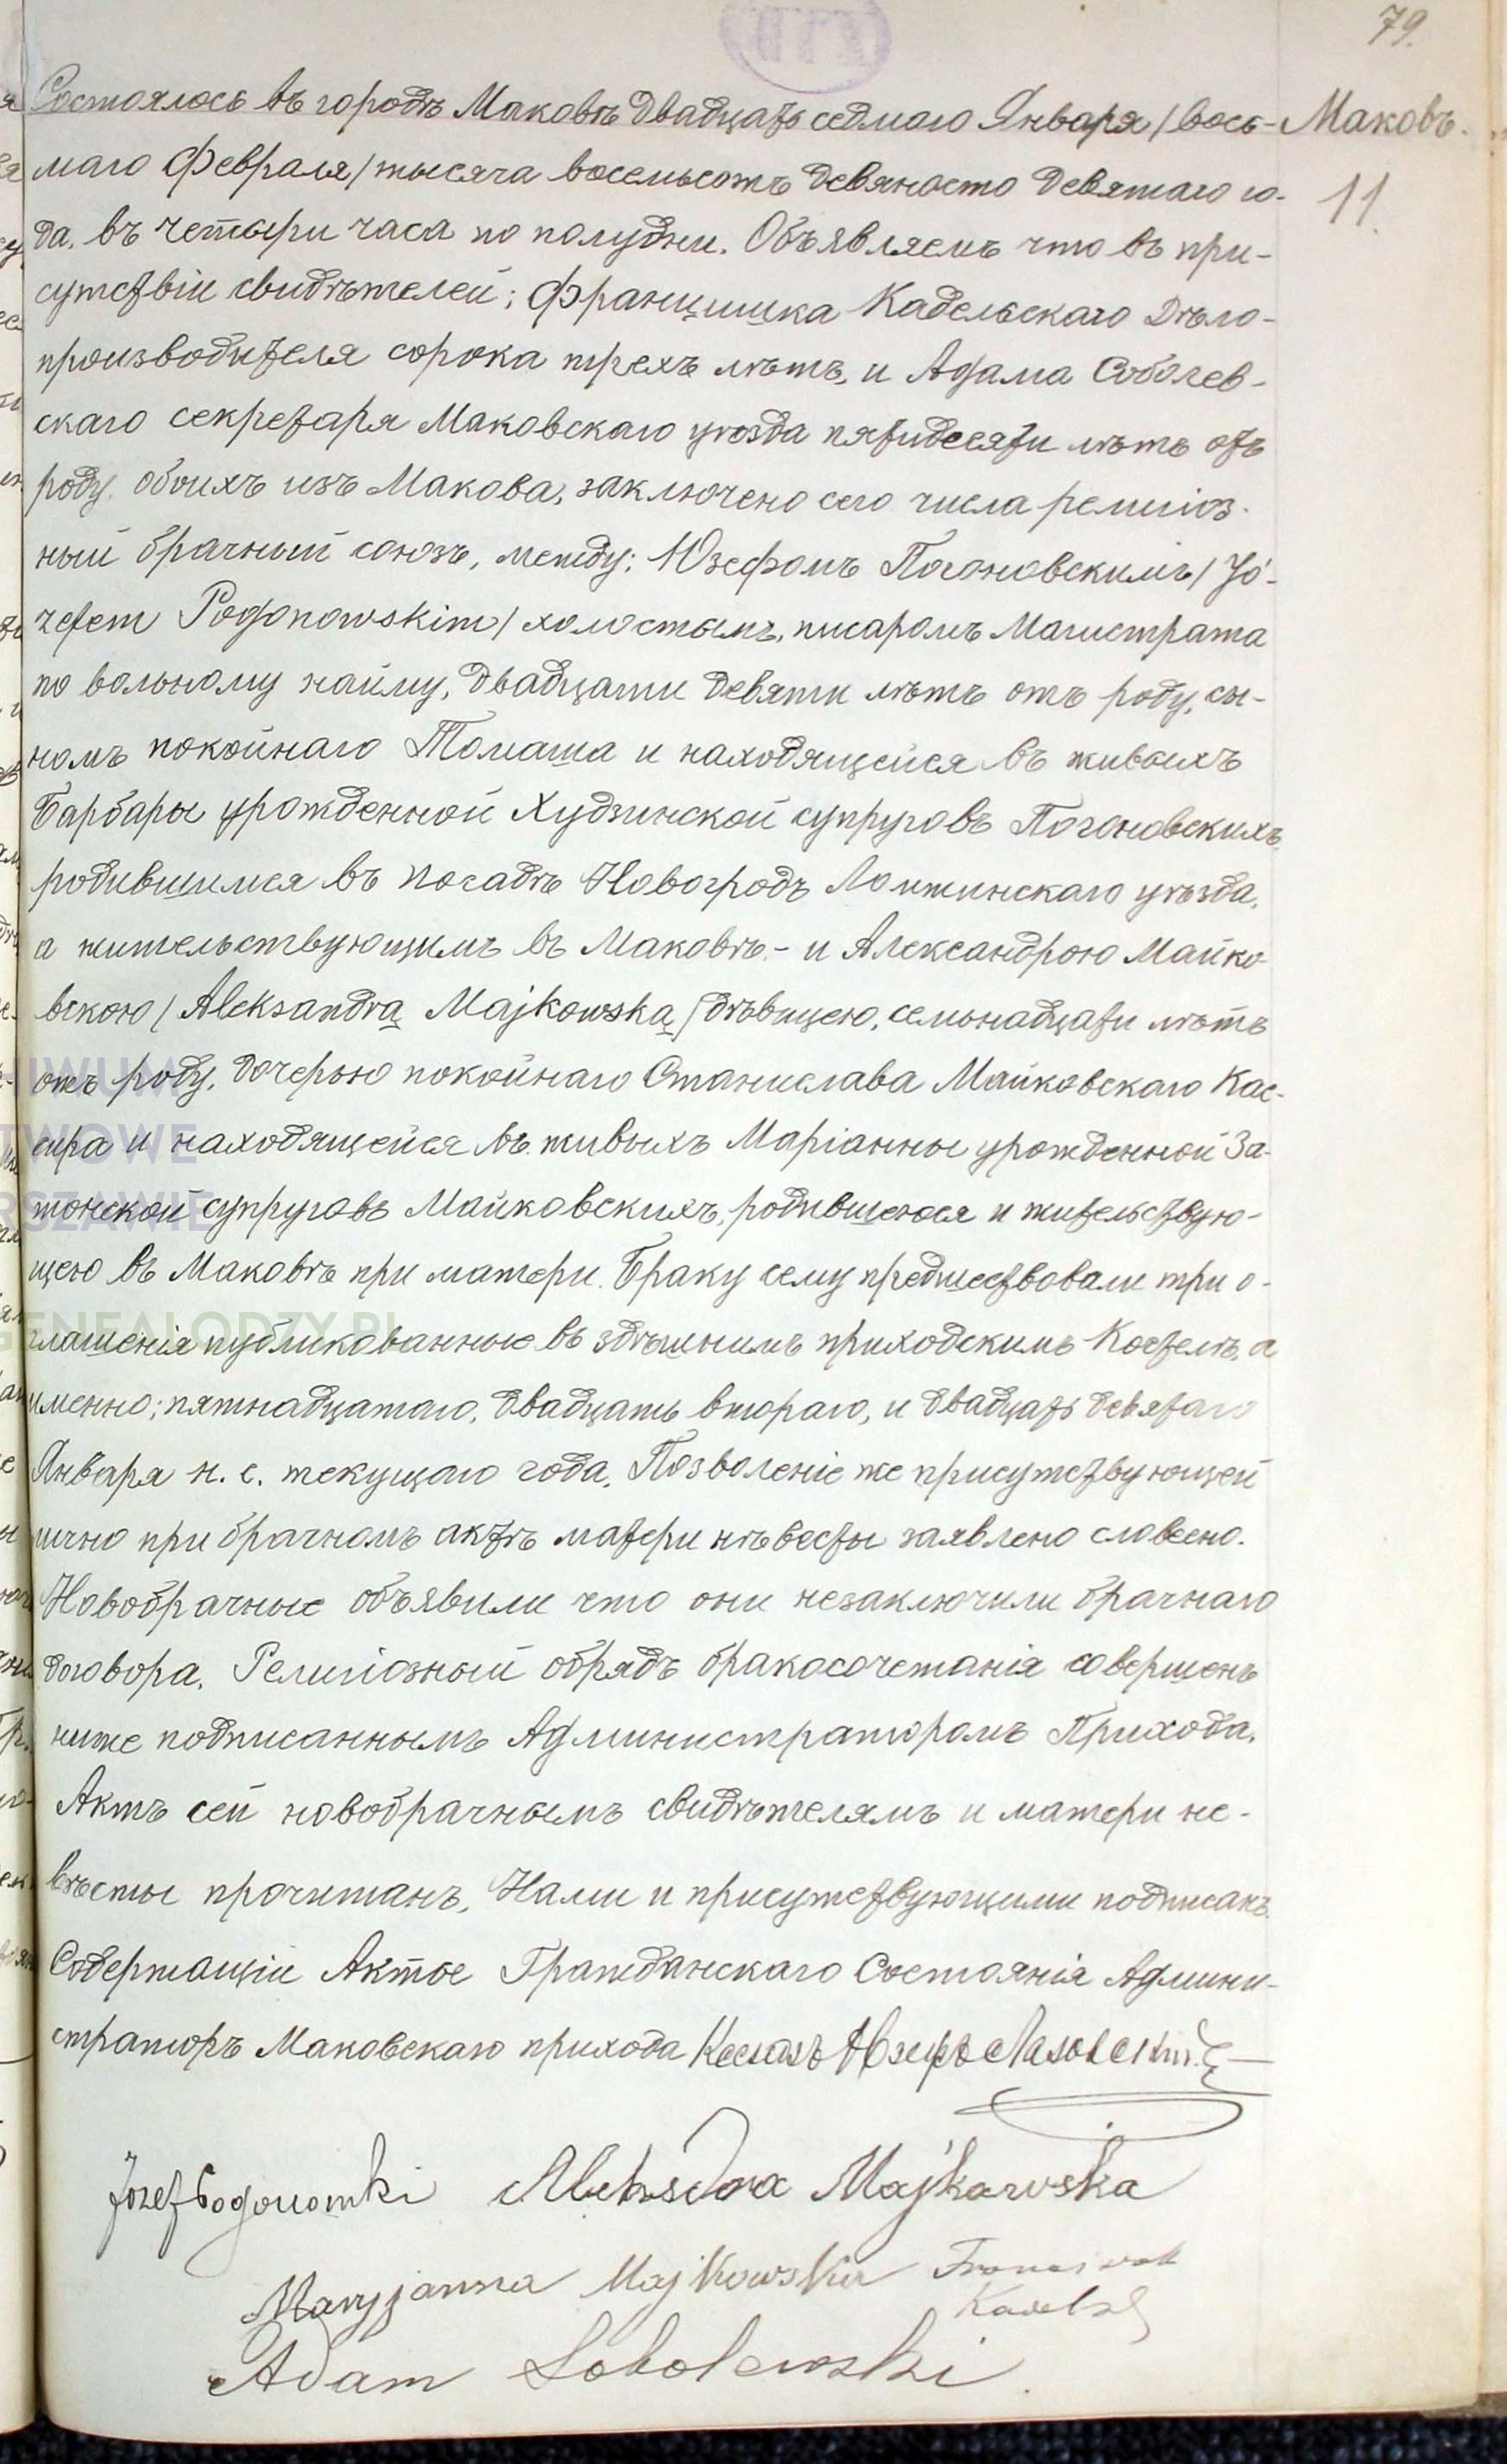 79.
Состоялось въ городѣ Маковѣ двадцать седмого Января /вось-
Маковъ.
11.
маго Февраля/ тысяча восемьсотъ девяносто девятаго го-
да, въ четыри часа по полудни. Объявляемъ что въ при-
сутствіи свидѣтелей; Францишка Кадельскаго Дѣло-
производителя сорока трехъ лѣтъ, и Адама Соболев-
скаго секретаря Маковскаго уѣзда пятидесяти лѣтъ отъ
роду, обоихъ изъ Макова, заключено сего числа религіоз-
ный брачный союзъ, между; Юзефомъ Погоновскимъ /Jó-
zefem Pogonowskim/ холостымъ, писаромъ Магистрата
по вольному найму, двадцати девяти лѣтъ отъ роду, сы-
номъ покойнаго Томаша и находящейся въ живыхъ
Барбары урожденной Худзинской супруговъ Погоновскихъ
родившимся въ посадѣ Новогродъ Ломжинскаго уѣзда,
а жительствующимъ въ Маковѣ - и Александрою Майко-
вскою /Aleksandrą Majkowską/ дѣвицею, семьнадцати лѣтъ
отъ роду, дочерью покойнаго Станислава Майковскаго Кас-
сира и находящейся въ живыхъ Маріанны урожденной За-
тонской супруговъ Майковскихъ, родившеюся и жительствую-
щею въ Маковѣ при матери. Браку сему предшествовали три о-
глашенія публикованные въ здѣшнимъ приходскимъ Костелѣ, а
именно; пятнадцатаго, двадцать втораго, и двадцать девятаго
Января н. с. текущаго года. Позволеніе же присутствующей
лично при брачномъ актѣ матери нѣвесты заявлено словесно.
Новобрачные объявили что они незаключили брачнаго
договора. Религіозный обрядъ бракосочетанія совершенъ
ниже подписаннымъ Администраторомъ Прихода.
Актъ сей новобрачнымъ свидѣтелямъ и матери не-
вѣсты прочитанъ, Нами и присутствующими подписанъ.
Содержащій Актое Гражданскаго Состоянія Админи-
страторъ Маковскаго прихода Ксендзъ Юзефъ
Józef Pogonowski Aleksandra Majkowska
Maryjanna Majkowska Franciszek
Adam Sobolewski
HIWUM
TWOWE
RSZAWIE
GENEALODZY.PL